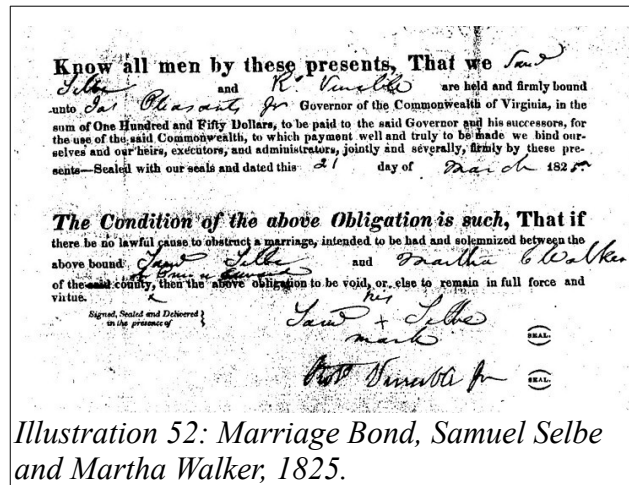 Know all men by these presents, That we Saml
Selbe and R. Venable are held and firmly bound
unto Jas Pleasants Jr Governor of the Commonwealth of Virginia, in the
sum of One Hundred and Fifty Dollars, to be paid to the said Governor and his successors, for
the use of the said Commonwealth, to which payment well and truly to be made we bind our-
selves and our heirs, executors, and administrators, jointly and severally, firmly by these pre-
sents—Sealed with our seals and dated this 21 day of March 1825.
The Condition of the above Obligation is such, That if
there be no lawful cause to obstruct a marriage, intended to be had and solemnized between the
above bound Saml Selbe and Martha C Walker
of the said county, then the above obligation to be void, or else to remain in full force and
virtue.
his
Signed, Sealed and Delivered
in the presence of
Saml + Selbe
mark
SEAL.
Venable Jr
SEAL.
Illustration 52: Marriage Bond, Samuel Selbe
and Martha Walker, 1825.